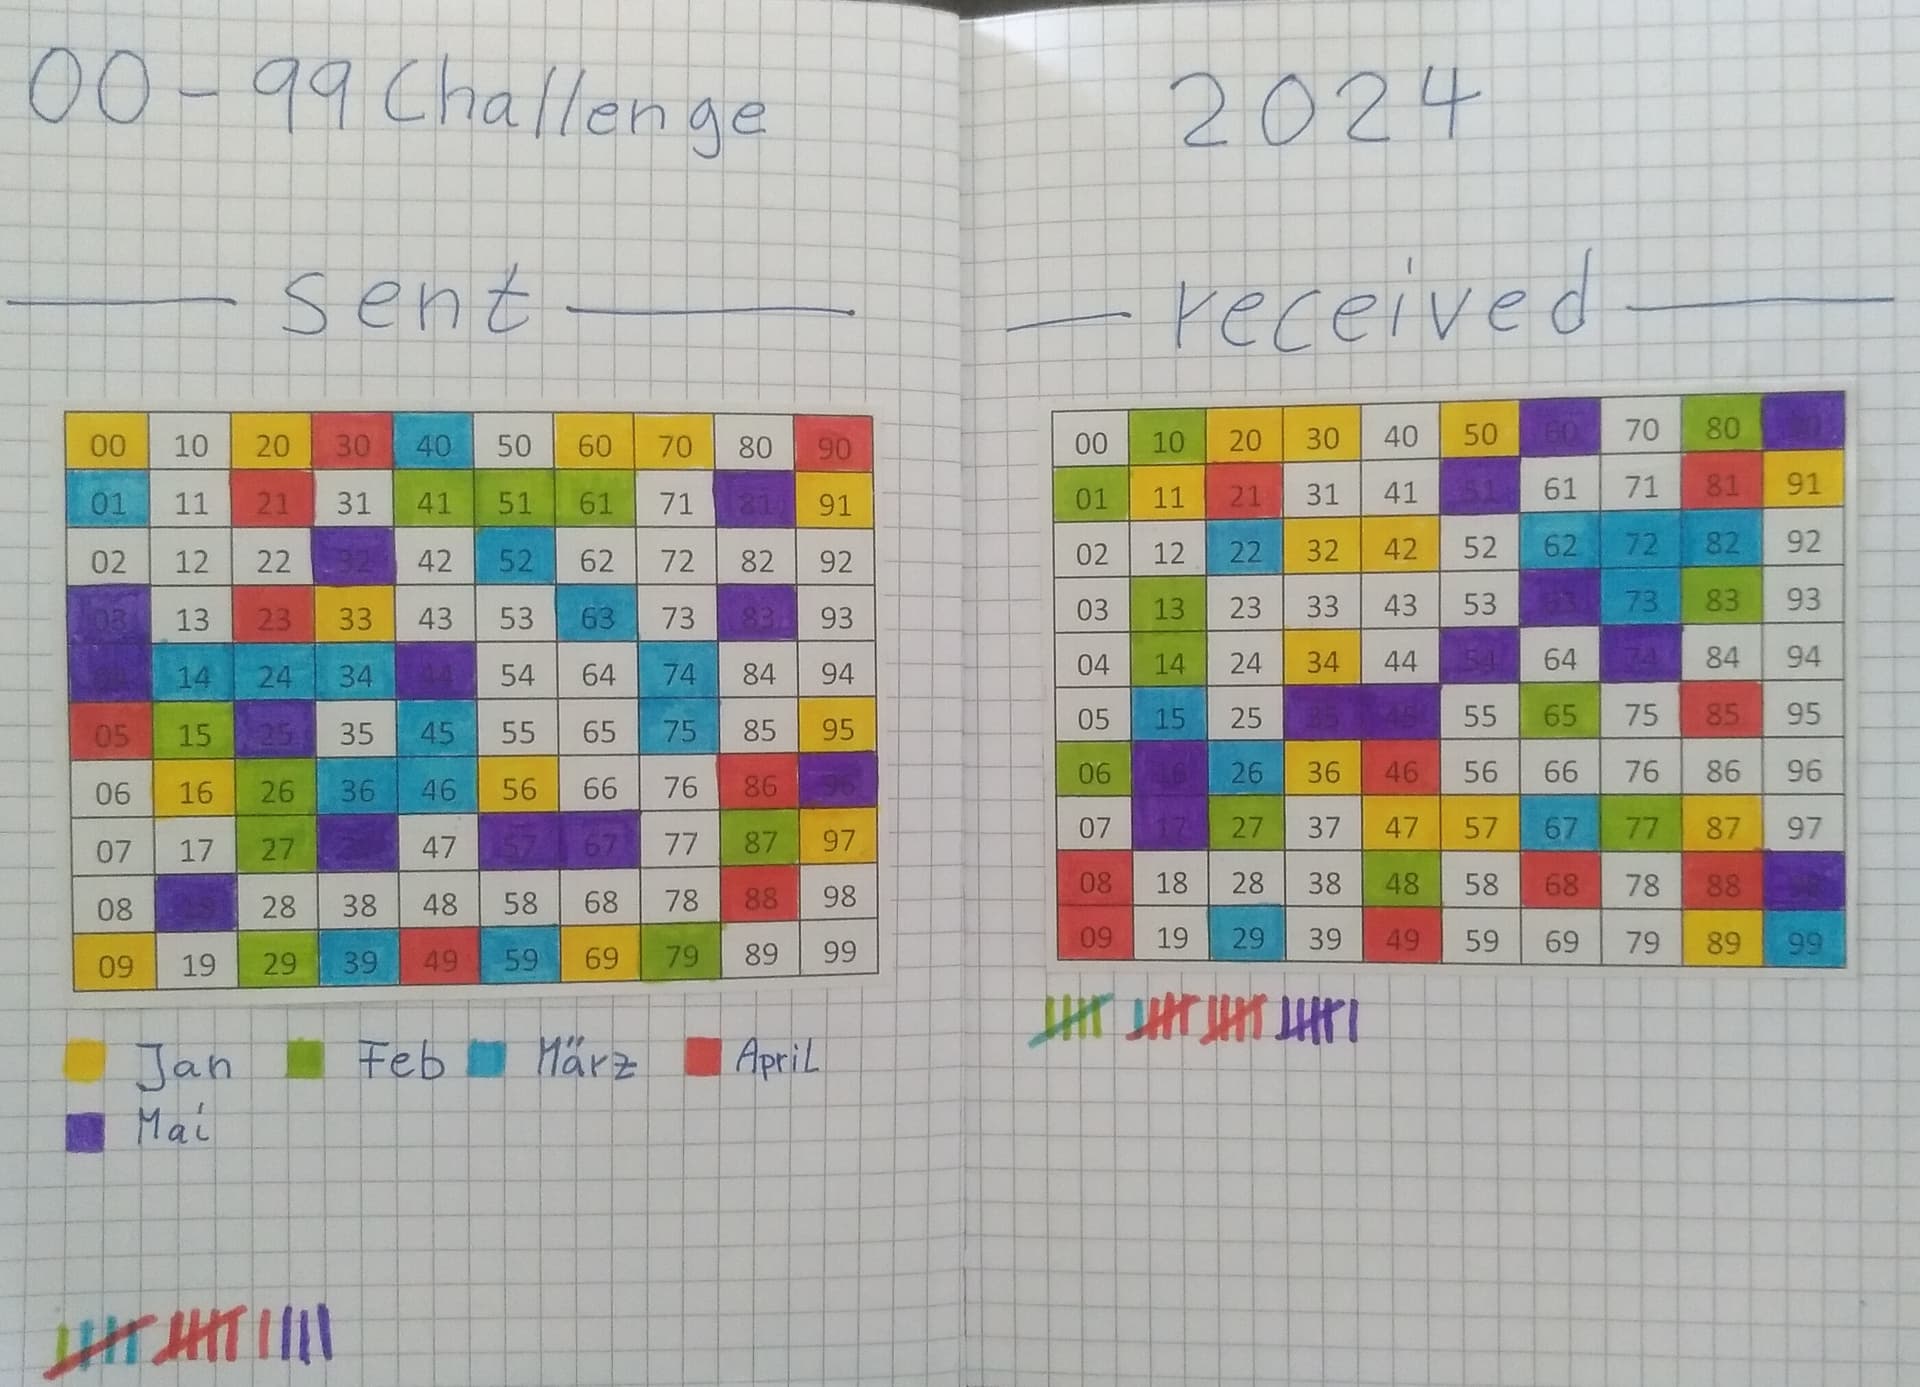 00-99 Challenge
sent
00 10 20 30 40 50 60 70 80 90
01 11 21 31 41 51 61 71 81 91
02 12 22 32 42 52 62 72 82 92
03 13 23 33 43 53 63 73 83 93
14 24 34 44 54 64 74 84 94
05 15 25 35 45 55 65 75 85 95
06 16 26 36 46 56 66 76 86 96
07 17 27 47 57 67 77 87 97
08 28 38 48 58 68 78 88 98
09 19 29 39 49 59 69 79 89 99
Jan Feb März April
Mai
2024
received
00 10 20 30 40 50 60 70 80
01 11 21 31 41 51 61 71 81 91
02 12 22 32 42 52 62 72 82 92
03 13 23 33 43 53 73 83 93
04 14 24 34 44 54 64 74 84 94
05 15 25 35 45 55 65 75 85 95
06 16 26 36 46 56 66 76 86 96
07 17 27 37 47 57 67 77 87 97
08 18 28 38 48 58 68 78 88
09 19 29 39 49 59 69 79 89 99